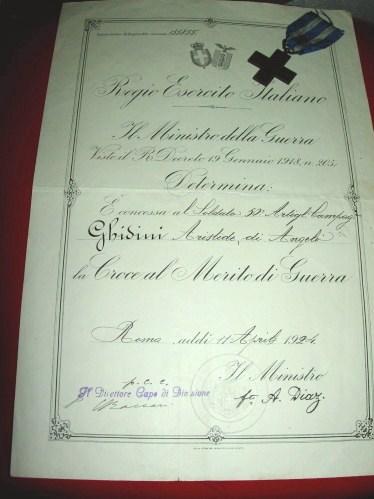 155855
Regio Esercito Italiano
Il Ministro della Guerra
Visto il R. Decreto 19 Gennaio 1918, n. 205;
Determina:
È concessa al Soldato Artigl. Campag.
Ghidini Aristide di Angelo
la Croce al Merito di Guerra
Roma addì 11 Aprile 1924
p. c. c. Il Ministro
Il Direttore Capo di Divisione
fo A. Diaz.